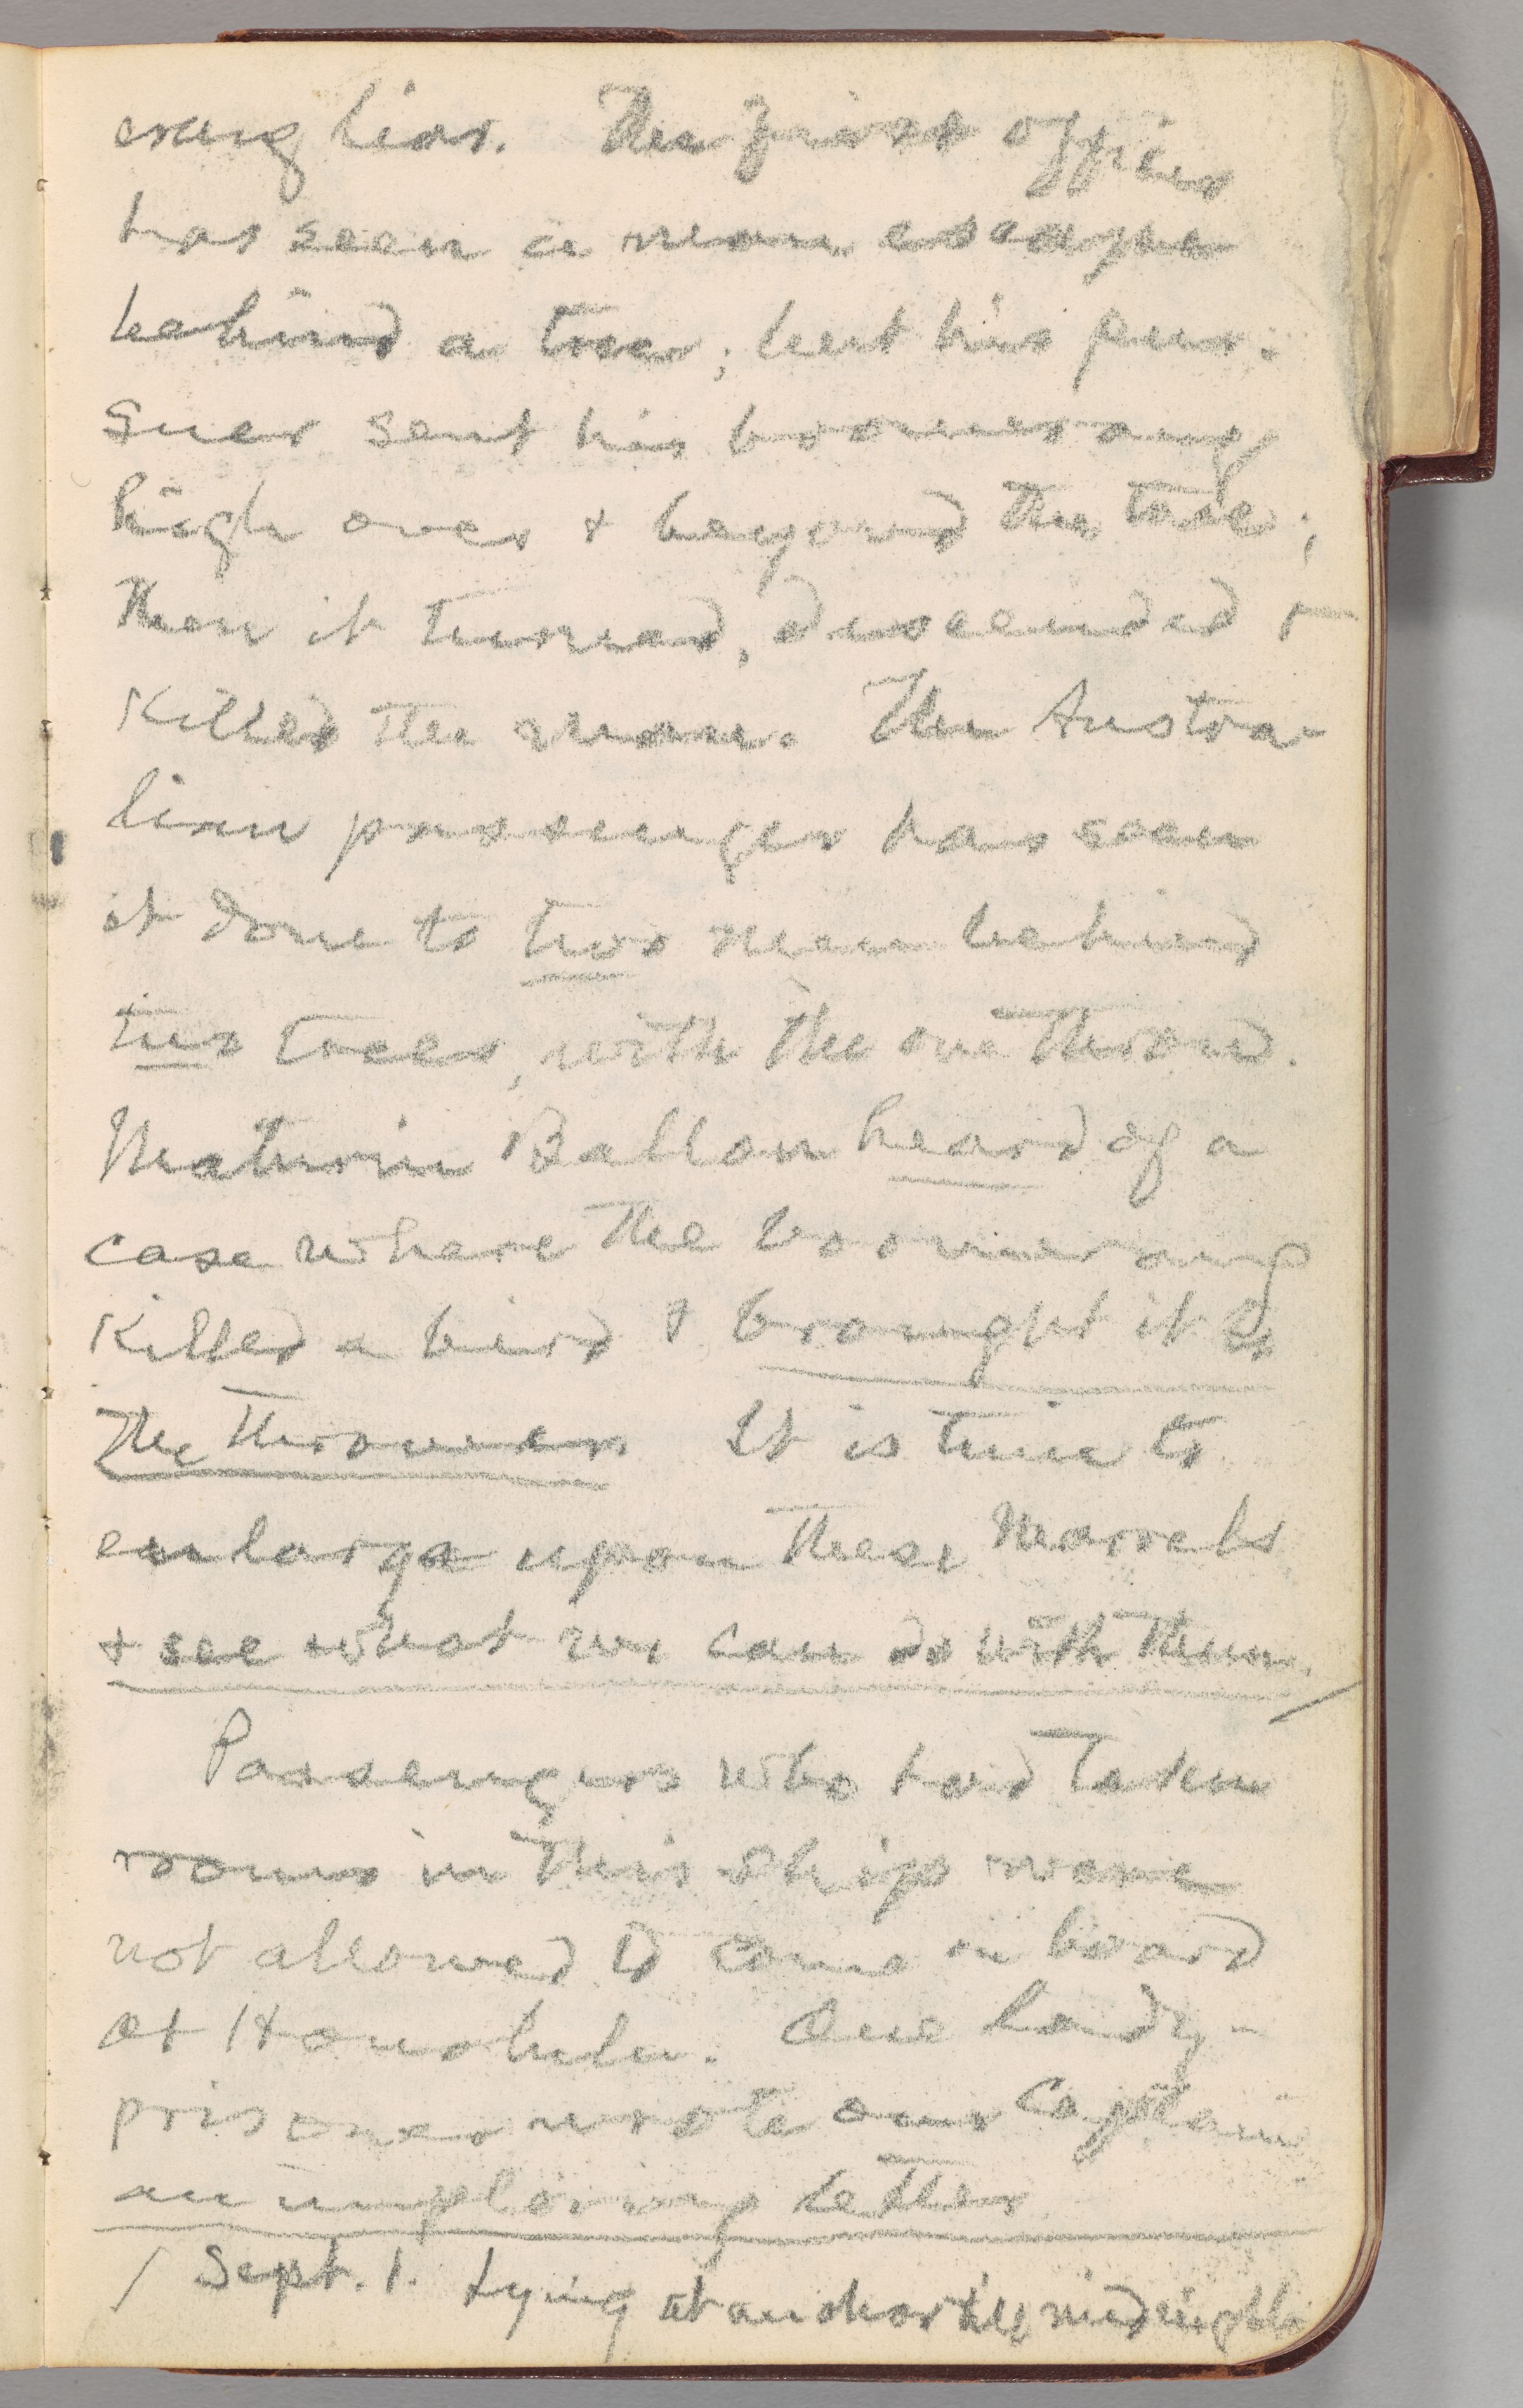 erang liar. The first officer
has seen a man escape
behind a tree; but his pur-
suer sent his boomerang
high over & beyond the tree;
then it turned, descended &
killed the man. The Austra-
lian passenger has seen
it done to two men behind
two trees, with the one throw.
Maturin Ballou heard of a
case where the boomerang
killed a bird & brought it to
the thrower. It is time to
enlarge upon these marvels
& see what we can do with them.
Passengers who had taken
rooms in this ship were
not allowed to come on board
at Honolulu. One lady-
prisoner wrote our Captain
an imploring letter
/ Sept. 1. Lying at anchor till midnight